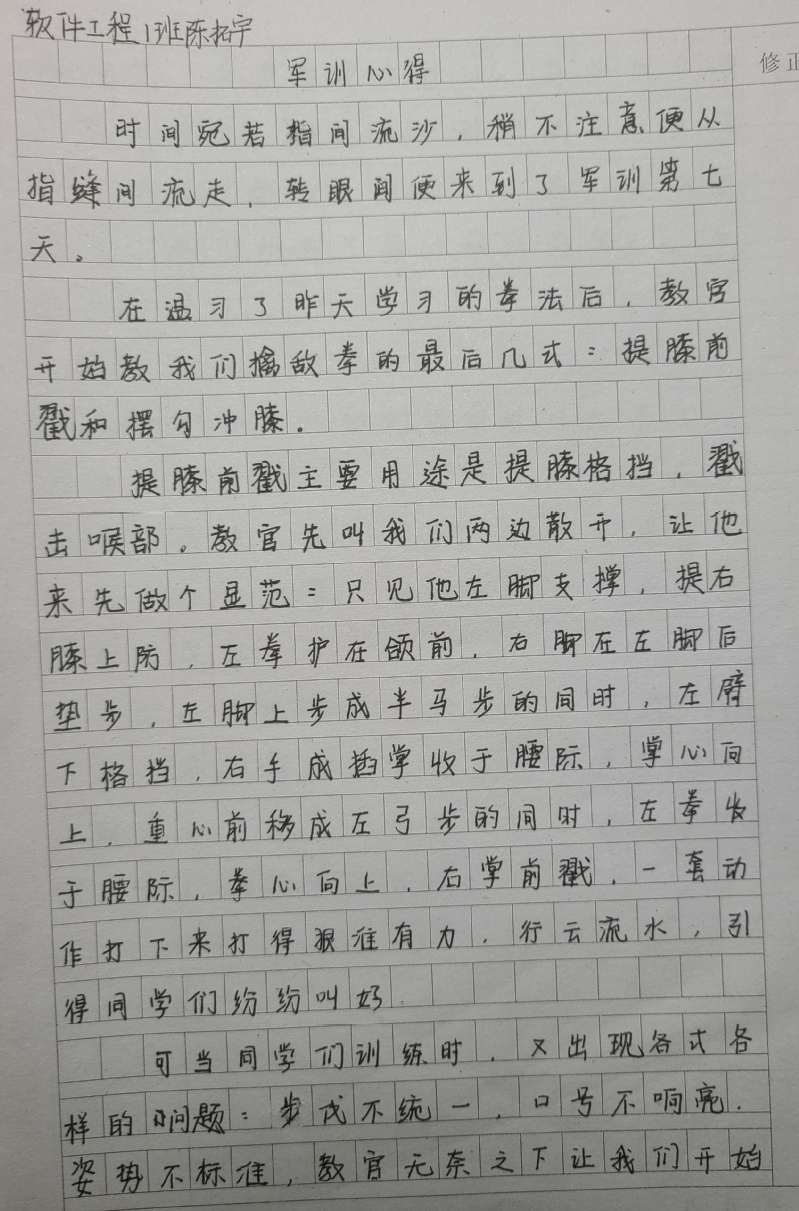 软件工程1班陈拓宇
军训心得
修正
时间宛若指间流沙，稍不注意便从
指缝间流走，转眼间便来到了军训第七
天。
在温习了昨天学习的拳法后，教官
开始教我们擒敌拳的最后几式：提膝前
戳和摆勾冲膝。
提膝前戳主要用途是提膝格挡，戳
击喉部。教官先叫我们两边散开，让他
来先做个显范：只见他左脚支撑，提右
膝上防，左拳护在颌前，右脚在左脚后
垫步，左脚上步成半马步的同时，左臂
下格挡，右手成插掌收于腰际，掌心向
上，重心前移成左弓步的同时，左拳收
于腰际，拳心向上，右掌前戳，一套动
作打下来打得狠准有力，行云流水，引
得同学们纷纷叫好.
可当同学们训练时，又出现各式各
样的问题：步伐不统一，口号不响亮.
姿势不标准，教官无奈之下让我们开始